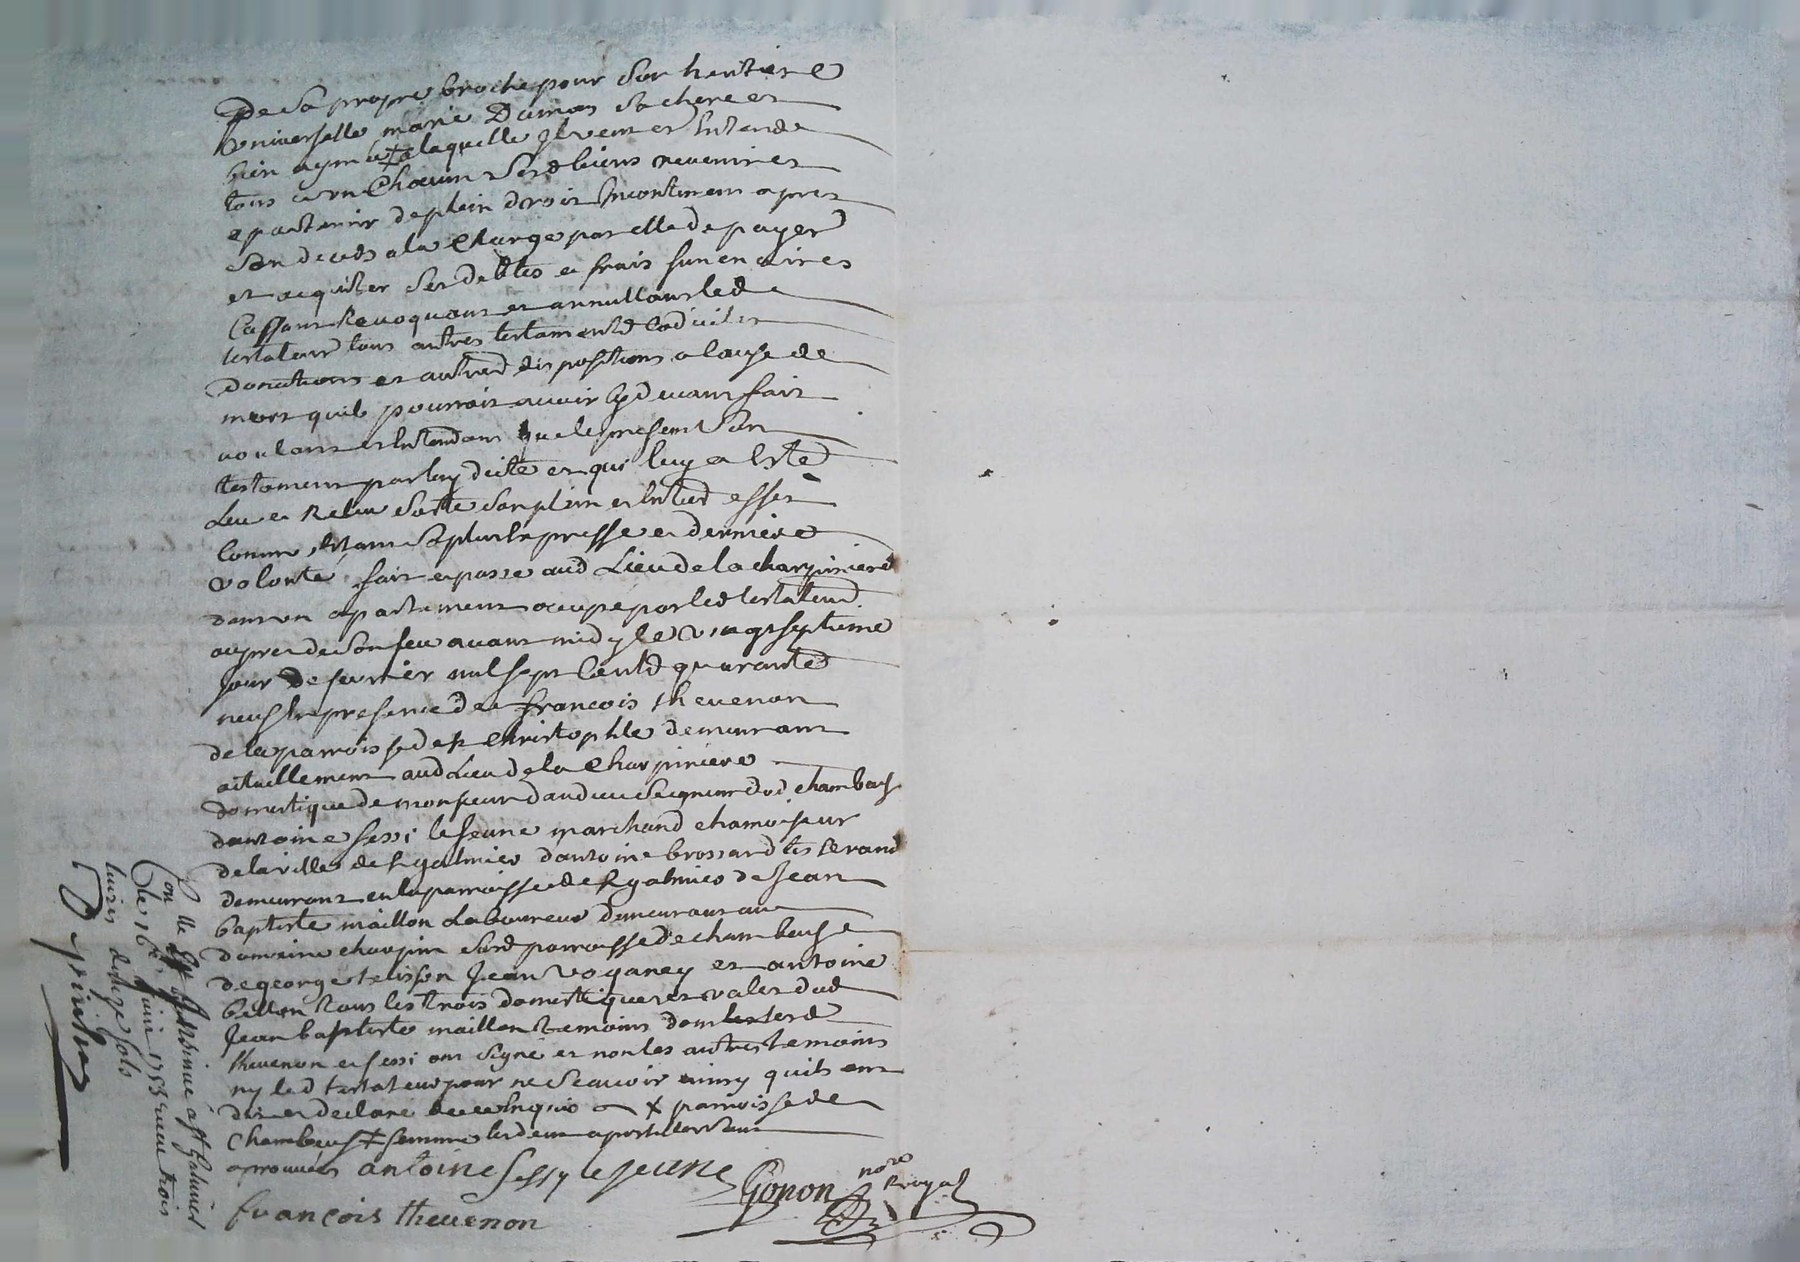 De sa propre bouche pour son heritiere
universelle marie Dumas sa chere et
bien aymée + a laquelle Il veut et Entend
tous un Chacun Sesd biens revenir et
apartenir de plein droit Incontinent apres
son deceds a la Charge par elle de payer
et acquiter ses debtes et frais funeraires
Cassant Revoquant et annullant led
testateur tous autres testamentd Codicilles
Donations et autred dispositions a Cause de
mort quil pourroit avoir Cy devant fait
voulant et Entendant que le present Son
testament par luy dicté et qui luy a Esté
Leu et Releu Sorte Son plein et Entier effet
Comme Estant Sa plus Expresse et derniere
volonté, fait et passé aud Lieu de la charpiniere
dans un apartement occupé par led testateur
aupres de Son feu avant midy le vingt septieme
Jour De fevrier mil sept Centd quarante
neuf En presence de françois thevenon
de la parroisse de st Christophle demeurant
actuellement aud Lieu de la Charpiniere
domestique de monsieur dandieu Seigneur dud chambeuf
dantoine sessi le Jeune marchand chamoiseur
de la ville de st galmier d'antoine brossard tisserand
demeurant en la parroisse de st galmier de Jean
baptiste maillon Laboureur demeurant au
domaine charpin Surd parroisse de chambeuf
de george telisson Jean voganey et antoine
bellon tous les trois domestiques et valet dud
Jean baptiste maillon temoins dont lesd
thevenon et sessi ont signé et non les autres temoins
ny led testateur pour ne Scavoir ainsy quils ont
dit et declaré de ce Enquis + parroisse de
Chambeuf + femme les deux apostilles
aprouvées antoine sessy le jeune
françois thevenon
Gonon nore Royal
Con lle & Insinué a st Galmier
le 16e Juin 1753 receu trois
livres douze sols